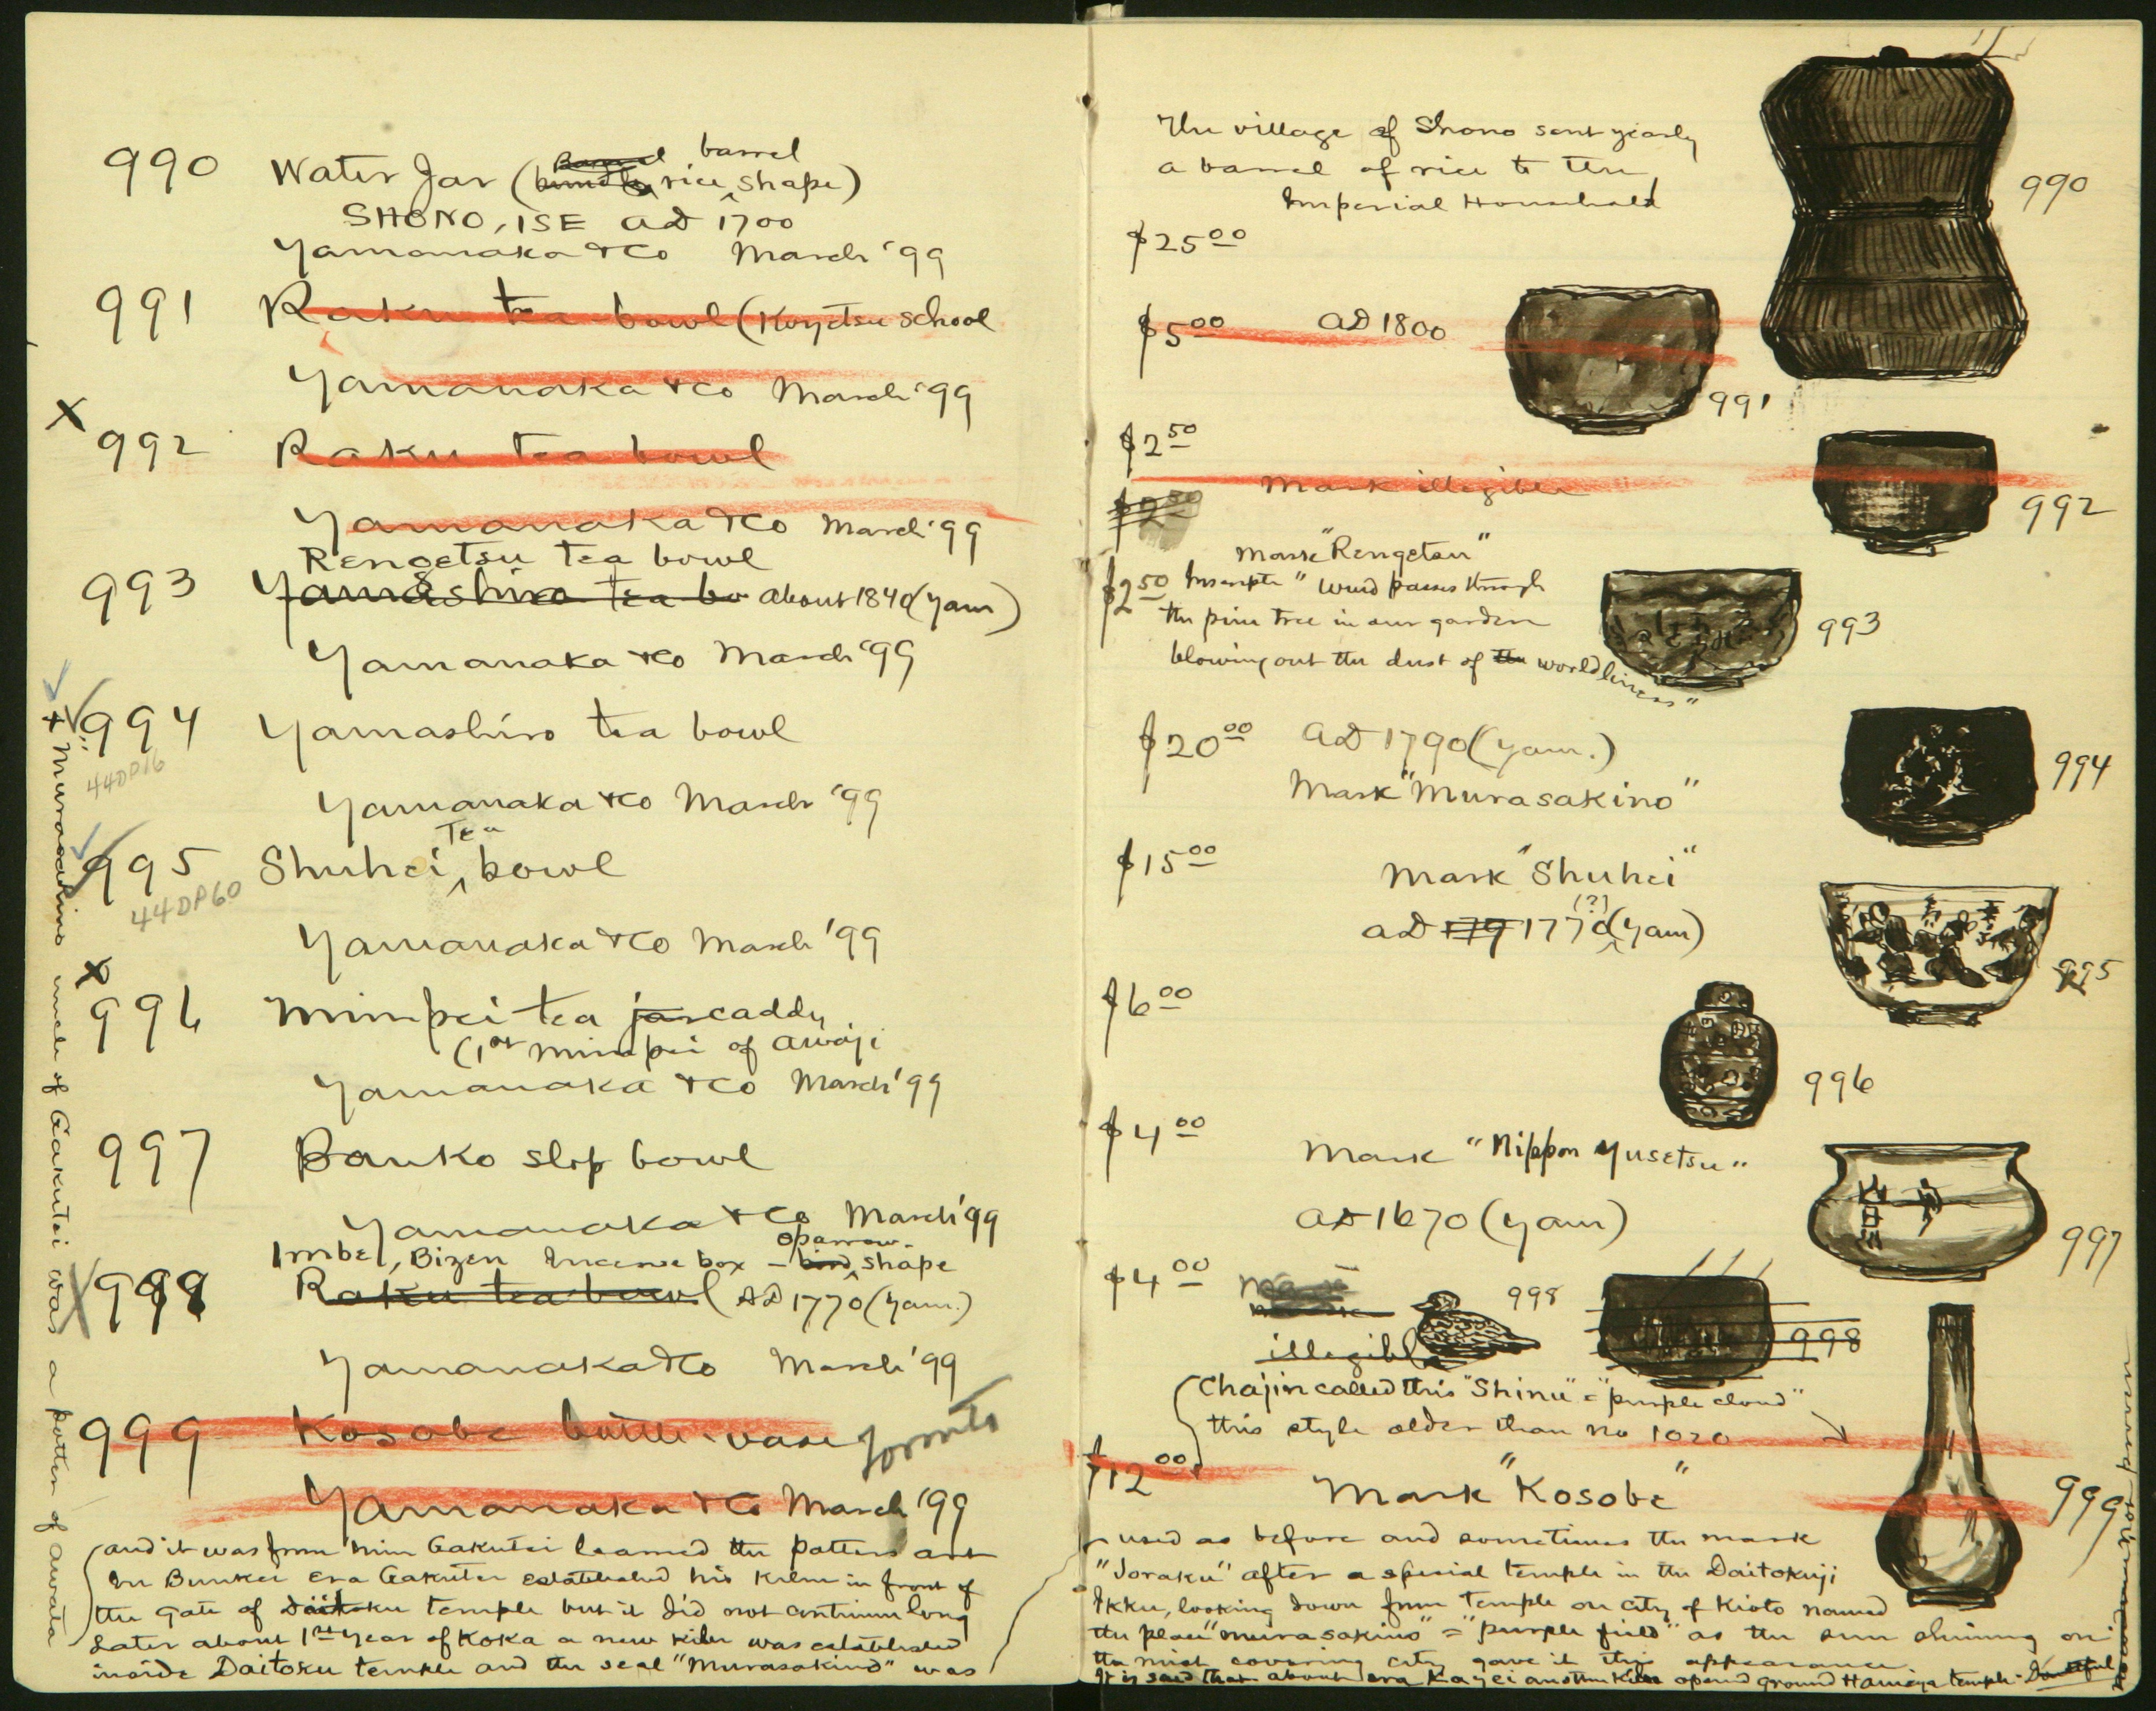 990 Water Jar (rice barrel shape)
SHONO, ISE AD 1700
Yamanaka & Co March '99
991 Raku tea bowl (Koyetsu School
Yamanaka & Co March '99
X
992 Raku tea bowl
Yamanaka & Co March '99
Rengetsu tea bowl
993 Yamashiro tea bo about 1840 (Yam)
Yamanaka & Co March '99
994 Yamashiro tea bowl
44DP16
Yamanaka & Co March '99
Tea
995 Shuhei bowl
44DP60
Yamanaka & Co March '99
X
996 Mimpei tea jar caddy
(1st Mimpei of Awaji
Yamanaka & Co March '99
997 Banko slop bowl
Yamanaka & Co March '99
sparrow
Imbe, Bizen Incense box - bird shape
X 998 Raku tea bowl (AD 1770 (Yam.)
Yamanaka & Co March '99
999 Kosobe bottle-vase Toronto
Yamanaka & Co March '99
and it was from him Gakutei learned the potters art
In Bunkei era Gakutei established his kiln in front of
the gate of Daitoku temple but it did not continue long
Later about 1st year of Koka a new kiln was established
inside Daitoku temple and the seal "Murasakino" was
+ "Murasakino uncle of Gakutei was a potter of Awata
The village of Shono sent yearly
a barrel of rice to the
Imperial Household
990
$25.00
$5.00 AD 1800
991
$2.50
Mark illegible
992
$2.50
Mark "Rengetsu"
$2.50 Inscript. "Wind passes through
the pine tree in our garden
blowing out the dust of the worldliness"
993
$20.00 AD 1790 (Yam.)
Mark "Murasakino"
994
$15.00 Mark "Shuhei"
(?)
AD 179 1770 (Yam)
995
$6.00
996
$4.00 Mark "Nippon Yusetsu"
AD 1670 (Yam)
997
$4.00
998
998
illegible
Chajin called this "Shinu" = "purple cloud"
this style older than no 1020
$12.00
Mark "Kosobe"
999
used as before and sometimes the mark
"Joraku" after a special temple in the Daitokuji
Ikku, looking down from temple on city of Kioto named
the place "Murasakino" = "purple field" as the sun shining on
the mist covering city gave it this appearance
It is said that about era Kayei another kiln opened ground Hamiya temple - Doubtful
not proven